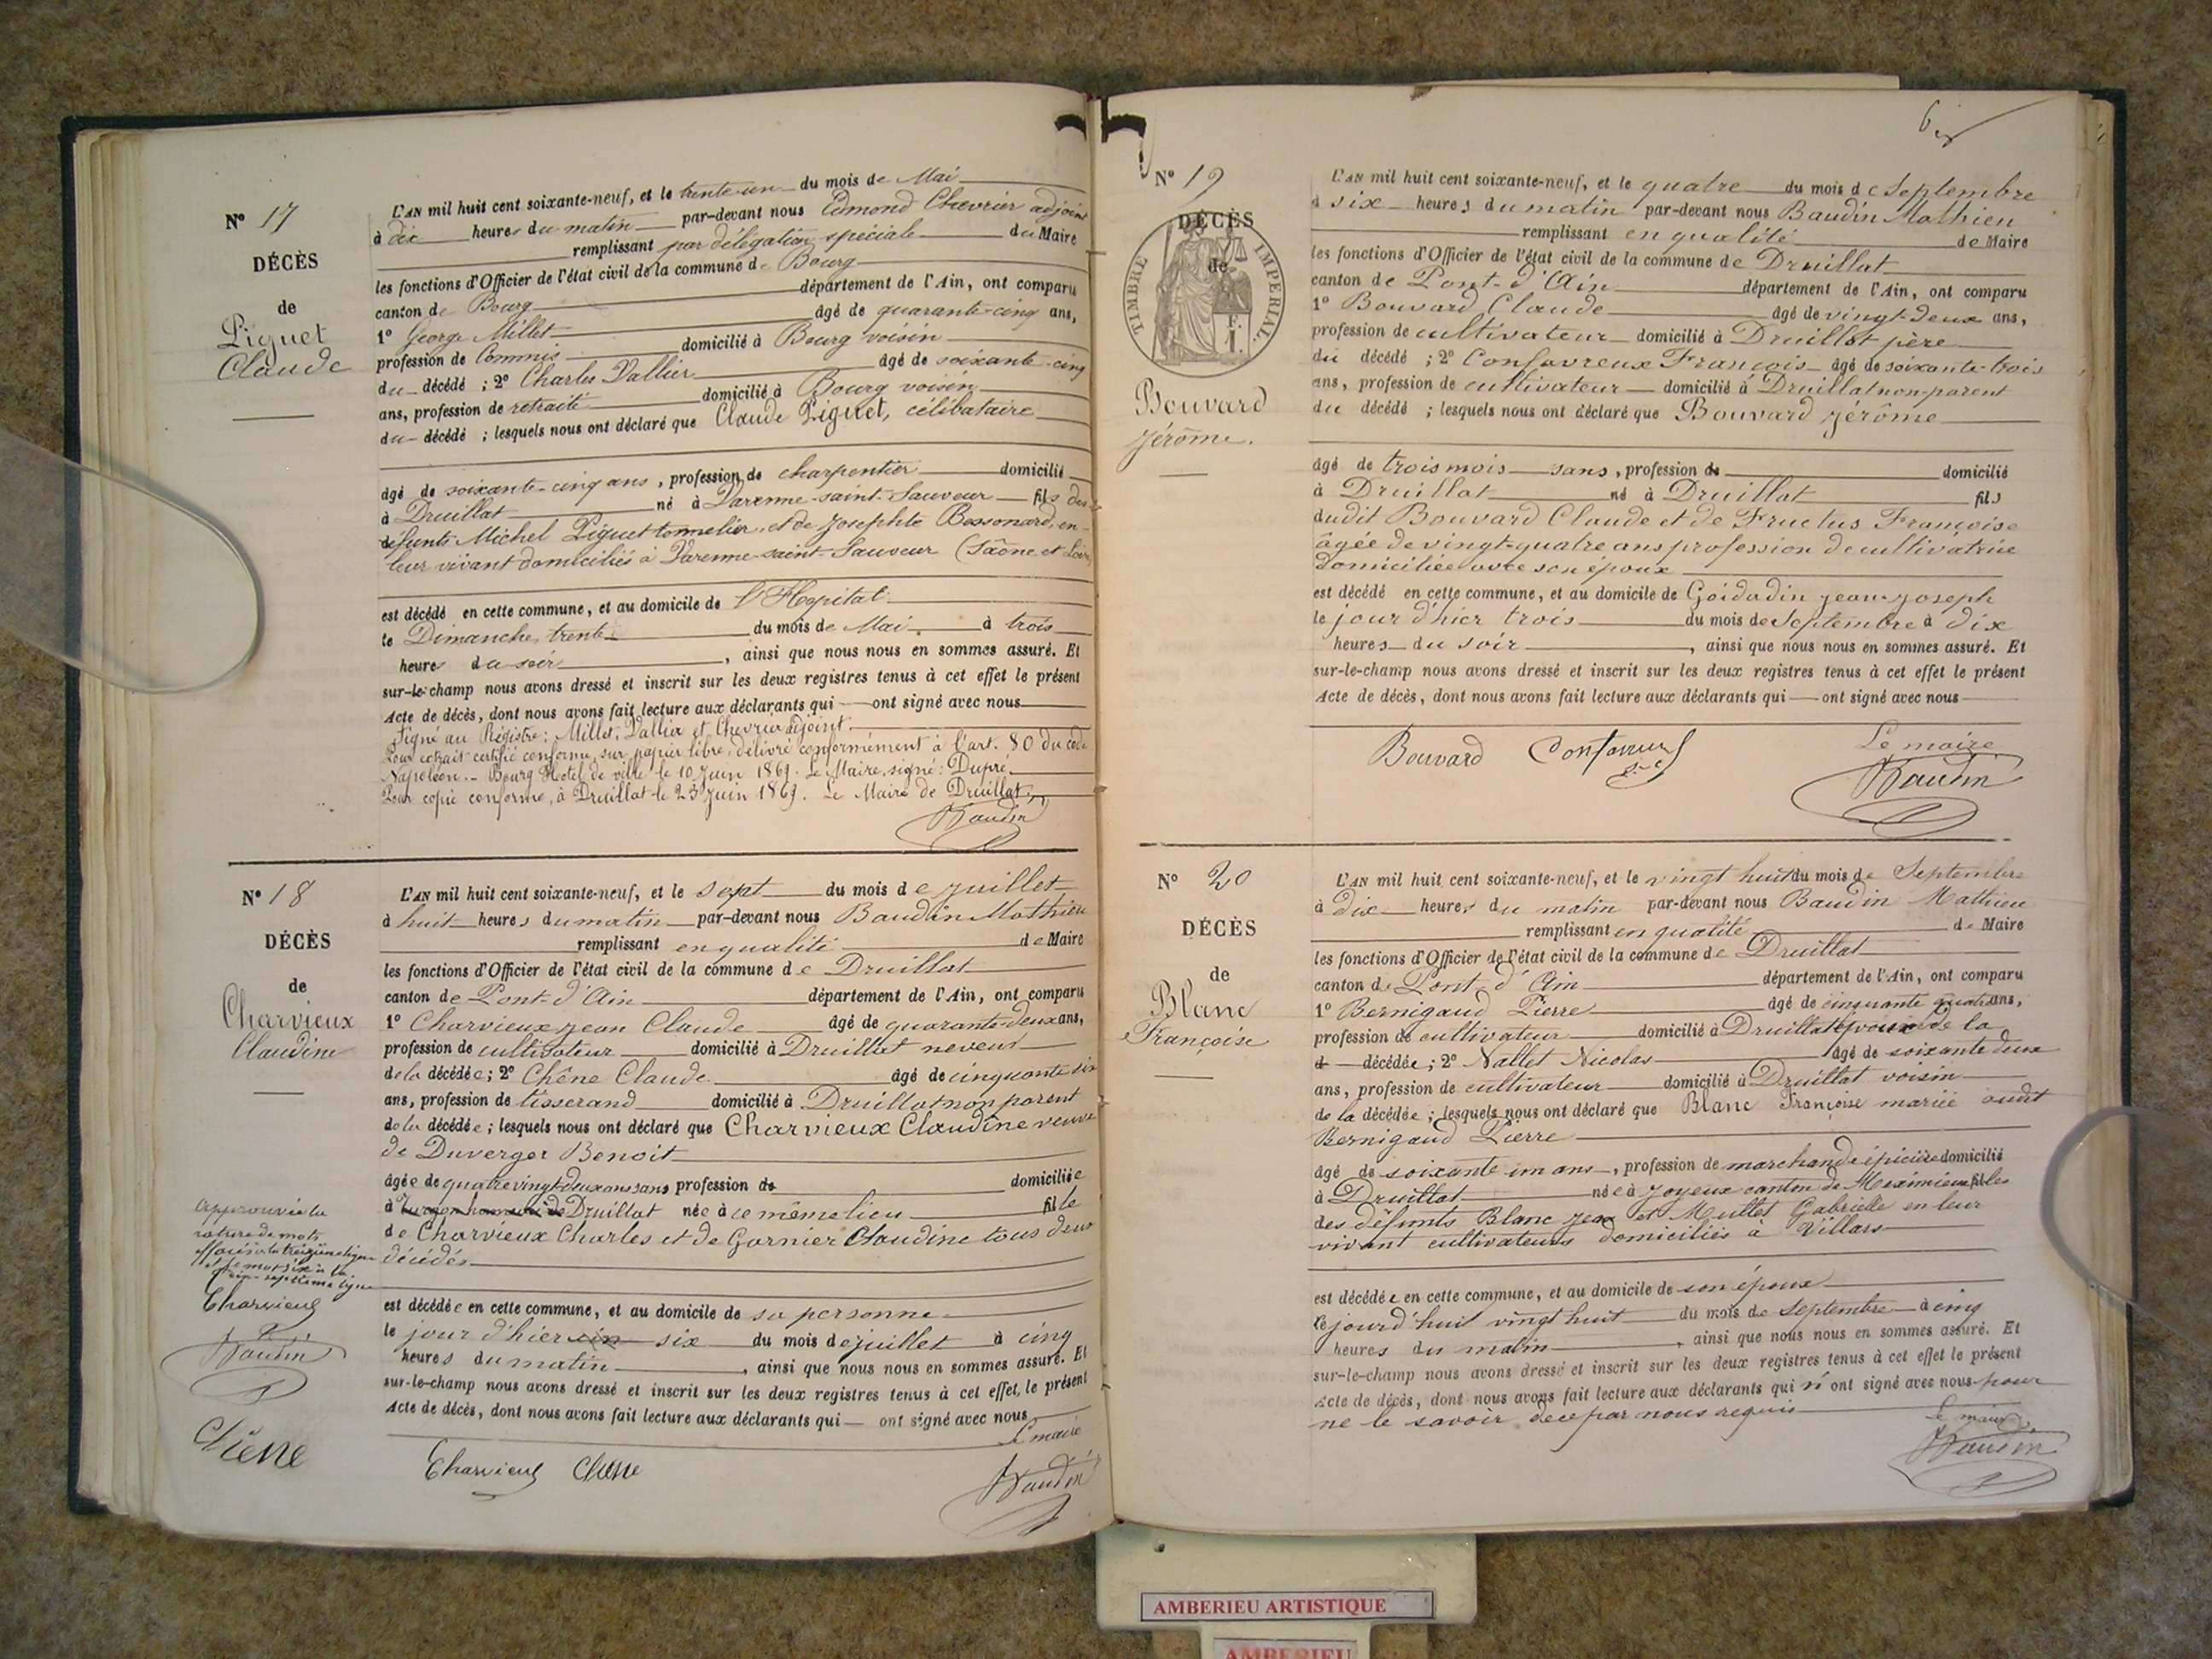 N° 17
DÉCÈS
de
Piguet
Claude
L'AN mil huit cent soixante-neuf, et le trente-un du mois de Mai
à dix heures du matin par-devant nous Edmond Chevrier adjoint
remplissant par délégation spéciale du Maire
les fonctions d'Officier de l'état civil de la commune de Bourg
canton de Bourg département de l'Ain, ont comparu
1° George Millet âgé de quarante-cinq ans,
profession de Commis domicilié à Bourg voisin
du décédé ; 2° Charles Vallier âgé de soixante-cinq
ans, profession de retraité domicilié à Bourg voisin
du décédé ; lesquels nous ont déclaré que Claude Piguet, célibataire
âgé de soixante-cinq ans, profession de charpentier domicilié
à Druillat né à Varenne-saint-Sauveur fils des
défunts Michel Piguet tonnelier, et de Josephte Bessonard, en
leur vivant domiciliés à Varenne-saint-Sauveur (Saône et Loire
est décédé en cette commune, et au domicile de l'Hopital
le Dimanche, trente du mois de Mai, à trois
heures du soir, ainsi que nous nous en sommes assuré. Et
sur-le-champ nous avons dressé et inscrit sur les deux registres tenus à cet effet le présent
Acte de décès, dont nous avons fait lecture aux déclarants qui ont signé avec nous
Signé au Régistre : Millet, Vallier et Chevrier adjoint.
Pour extrait certifié conforme, sur papier libre, délivré conformément à l'art. 80 du code
Napoléon. - Bourg Hotel de ville le 10 Juin 1869. Le Maire, signé : Dupré
Pour copie conforme, à Druillat le 23 Juin 1869. Le Maire de Druillat,
Baudin
N° 18
DÉCÈS
de
Charvieux
Claudine
L'AN mil huit cent soixante-neuf, et le sept du mois de Juillet
à huit heures du matin par-devant nous Baudin Mathieu
remplissant en qualité de Maire
les fonctions d'Officier de l'état civil de la commune de Druillat
canton de Pont-d'Ain département de l'Ain, ont comparu
1° Charvieux Jean Claude âgé de quarante-deux ans,
profession de cultivateur domicilié à Druillat neveu
de la décédée ; 2° Chêne Claude âgé de cinquante six
ans, profession de tisserand domicilié à Druillat non parent
de la décédée ; lesquels nous ont déclaré que Charvieux Claudine veuve
de Duverger Benoit
âgée de quatre vingt-deux ans sans profession de domiciliée
à Druillat née à ce même lieu fille
de Charvieux Charles et de Garnier Claudine tous deux
décédés
est décédée en cette commune, et au domicile de sa personne
le jour d'hier six du mois de Juillet à cinq
heures du matin, ainsi que nous nous en sommes assuré. Et
sur-le-champ nous avons dressé et inscrit sur les deux registres tenus à cet effet, le présent
Acte de décès, dont nous avons fait lecture aux déclarants qui ont signé avec nous
Le maire
Charvieux Chêne Baudin
Approuvée la
rature de mots
Charvieux
Baudin
Chêne
N° 19
DÉCÈS
de
TIMBRE IMPERIAL
Bouvard
Jérôme.
L'AN mil huit cent soixante-neuf, et le quatre du mois de Septembre
à six heures du matin par-devant nous Baudin Mathieu
remplissant en qualité de Maire
les fonctions d'Officier de l'état civil de la commune de Druillat
canton de Pont-d'Ain département de l'Ain, ont comparu
1° Bouvard Claude âgé de vingt-deux ans,
profession de cultivateur domicilié à Druillat père
du décédé ; 2° Confavreux François âgé de soixante-trois
ans, profession de cultivateur domicilié à Druillat non-parent
du décédé ; lesquels nous ont déclaré que Bouvard Jérôme
âgé de trois mois sans, profession de domicilié
à Druillat né à Druillat fils
dudit Bouvard Claude et de Fructus Françoise
âgée de vingt-quatre ans profession de cultivatrice
domiciliée avec son époux
est décédé en cette commune, et au domicile de Goidadin Jean-Joseph
le jour d'hier trois du mois de Septembre à dix
heures du soir, ainsi que nous nous en sommes assuré. Et
sur-le-champ nous avons dressé et inscrit sur les deux registres tenus à cet effet le présent
Acte de décès, dont nous avons fait lecture aux déclarants qui ont signé avec nous
Le maire
Bouvard Baudin
N° 20
DÉCÈS
de
Blanc
Françoise
L'AN mil huit cent soixante-neuf, et le vingt huit du mois de Septembre
à dix heures du matin par-devant nous Baudin Mathieu
remplissant en qualité de Maire
les fonctions d'Officier de l'état civil de la commune de Druillat
canton de Pont-d'Ain département de l'Ain, ont comparu
1° Bernigaud Pierre âgé de cinquante quatre ans,
profession de cultivateur domicilié à Druillat époux de la
décédée ; 2° Nallet Nicolas âgé de soixante deux
ans, profession de cultivateur domicilié à Druillat voisin
de la décédée ; lesquels nous ont déclaré que Blanc Françoise mariée audit
Bernigaud Pierre
âgé de soixante un ans, profession de marchande épicière domicilié
à Druillat née à Joyeux canton de Meximieux fille
des défunts Blanc Jean et Mullet Gabrielle en leur
vivant cultivateurs domiciliés à Villars
est décédée en cette commune, et au domicile de son époux
le jourd'huit vingt huit du mois de Septembre à cinq
heures du matin, ainsi que nous nous en sommes assuré. Et
sur-le-champ nous avons dressé et inscrit sur les deux registres tenus à cet effet le présent
Acte de décès, dont nous avons fait lecture aux déclarants qui n'ont signé avec nous pour
ne le savoir de ce par nous requis
Le maire
Baudin
AMBERIEU ARTISTIQUE
AMBERIEU